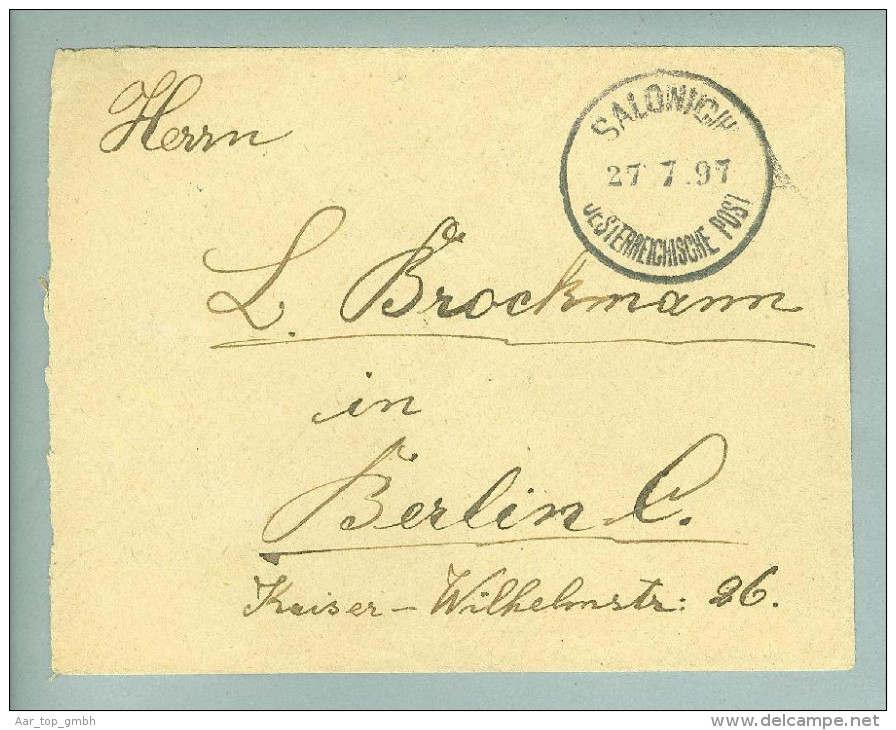 Herrn
SALONICH
27 7.97
OESTERREICHISCHE POST
L. Brockmann
in
Berlin C.
Kaiser-Wilhelmstr: 26.
Aar_top_gmbh
www.delcampe.net